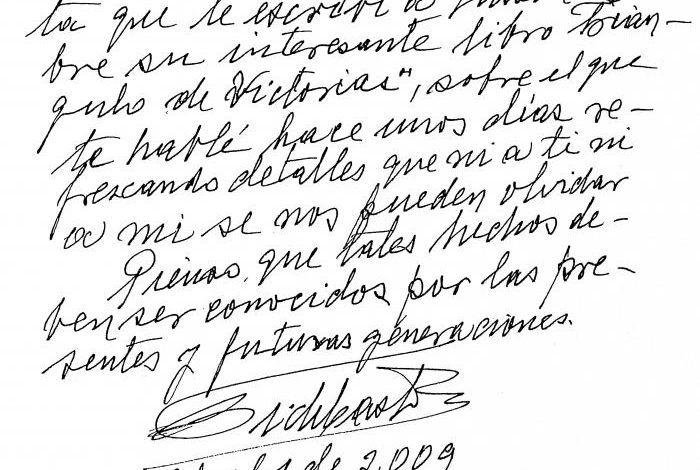 ta que te escribí a
bre su interesante libro Trian-
gulo de Victorias", sobre el que
te hablé hace unos días re-
frescando detalles que ni a ti ni
a mi se nos pueden olvidar
Pienso que tales hechos de-
ben ser conocidos por las pre-
sentes y futuras generaciones.
Fidel Castro R
de 2,009